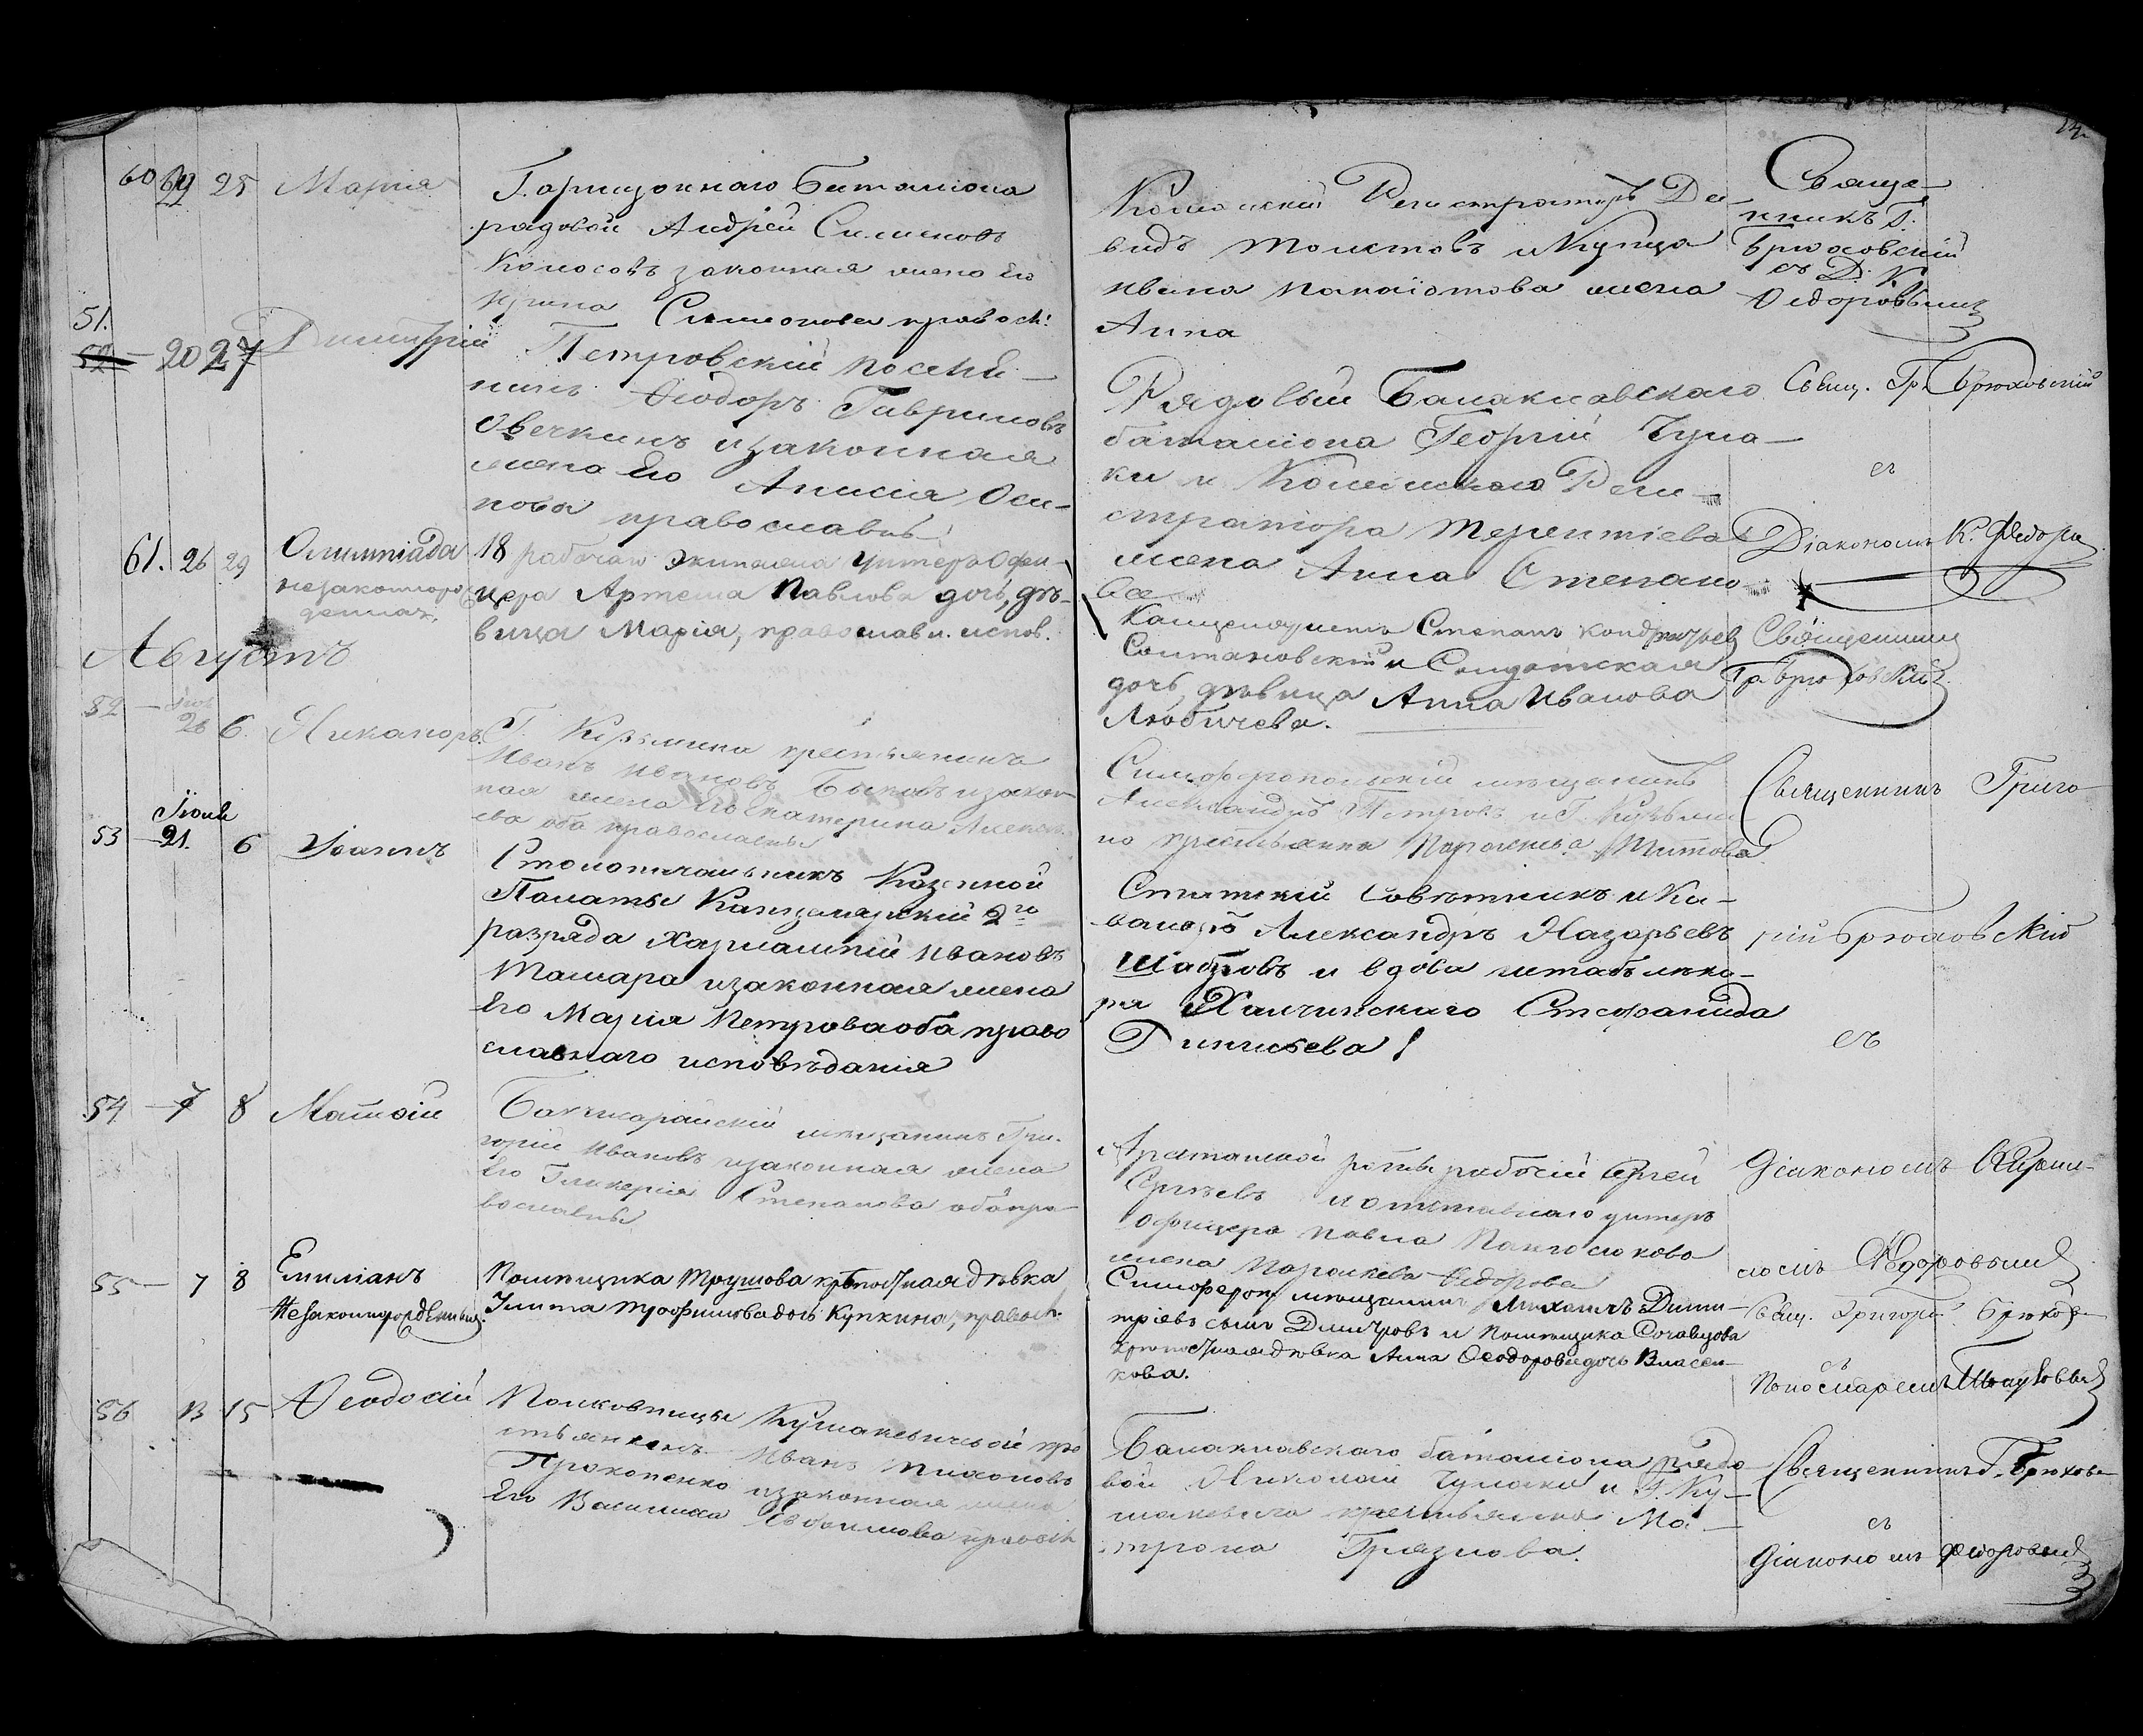 14
60 69 25 Марія
Гарнизоннаго Баталіона
рядовой Андрей Симеоновъ
Колосовъ законная жена Его
Ирина Симеонова правосл:
Коллежскій Регистраторъ Да-
видъ Толстовъ и Купца
Ивана Панаіотова жена
Анна
Свяще-
нникъ Г.
Брюховскій
съ Д. К.
Ѳедоровымъ
51.
52 — 20 27 Димитрій
Петровскій поселя-
нинъ Ѳеодоръ Гавриловъ
Овечкинъ и законная
жена Его Анисія Оси-
пова православн:
Рядовый Балаклавскаго
баталіона Георгій Чума-
ки и Колежскаго Реги-
стратора Терентіева
жена Анна Степано-
ва
Свящ. Гр. Брюховскій
съ
Діакономъ К. Ѳедоро
61. 26 29 Олимпіада
незаконоро
денная.
18 рабочаго экипажа унтеръ Офи-
цера Артема Павлова дочь, дѣ-
вица Марія, православн. испов.
Канцеляристъ Степанъ Кондратьев
Солтановскій и Солдатская
дочь, дѣвица Анна Иванова
Любичева.
Священникъ
Гр Брюховскій
Августъ
52 — Іюль
26 6. Никаноръ.
Г. Кузьмина крестьянинъ
Иванъ Ивановъ Быковъ и закон
ная жена Его Екатерина Алексѣ
ева оба православны
Симферопольскій мѣщанинъ
Александръ Петровъ и Г. Кузьми
но крестьянка Параскева Титова
Священникъ Григо-
53 — Іюнь
21. 6 Іоаннъ
Столоначальникъ Казенной
Палаты Канцелярскій 2го
разряда Харлампій Ивановъ
Ташара и законная жена
Его Марія Петрова оба право
славнаго исповѣданія
Статскій Совѣтникъ и Ка-
валеръ Александръ Назарьевъ
Шабловъ и вдова штабъ лѣка-
ря Халчинскаго Стефанида
Гинитева
рій Брюховскій
съ
54 — 7 8 Матѳій
Бахчисарайскій мѣщанинъ Гри-
горій Ивановъ и законная жена
Его Гликерія Степанова оба пра-
вославны
Арестанской роты рабочій Сергей
Сергѣевъ и отставнаго унтеръ
офицера Павла Пангосюкова
жена Параскева Ѳедорова
Діакономъ Кирил-
ломъ Ѳедоровымъ
55 — 7 8 Емиліанъ
Незаконнорожденный.
Помѣщика Трушова крѣпостная дѣвка
Улита Трофимова дочь Купкина, правосл.
Симфероп мѣщанинъ Михаилъ Дими-
тріевъ сынъ Димитровъ и помѣщика Сочавцова
крѣпостная дѣвка Анна Ѳеодорова дочь Власен-
кова.
Свящ. Григорій Брюхов
съ
56 13 15 Ѳеодосій
Полковницы Кушакевичевой кре
стьянинъ Иванъ Тихоновъ
Прокопенко и законная жена
Его Василиса Евѳимова правосл
Балаклавскаго баталіона рядо
вой Николай Чумаки и Г. Ку-
шакевича крестьянка Ма-
трона Грязнова.
Священникъ Г. Брюхове
съ
Діакономъ Ѳедоровымъ